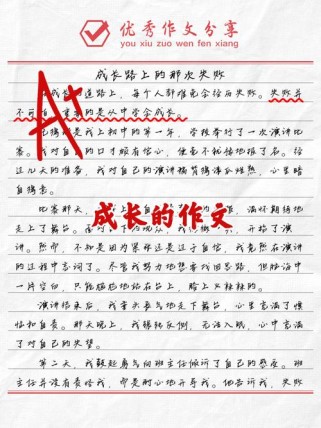 优秀作文分享
you xiu zuo wen fen xiang
成长路上的那次失败
成长道路上，每个人都难免会经历失败。失败并
不可怕，重要的是从中学会成长。
那是我上初中的第一年，学校举行了一次演讲比
赛。我对自己的口才颇有信心，便毫不犹豫地报了名。经
过几天的准备，我对自己的演讲稿背得滚瓜烂熟，心里暗
自得意。
比赛那天，我
满怀期待地
走上了舞台。
开始了演
讲。然而，不知是因为紧张还是过于自信，我竟然在演讲
的过程中忘词了。尽管我努力地想寻找回思路，但脑海中
一片空白，只能尴尬地站在台上，脸上火辣辣的。
成长的作文
演讲结束后，我垂头丧气地走下舞台，心里充满了懊
恼和自责。那天晚上，我辗转反侧，无法入眠，心中充满
了对自己的失望。
第二天，我鼓起勇气向班主任倾诉了自己的感受。班
主任并没有责怪我，而是耐心地开导我。他告诉我，失败
A+